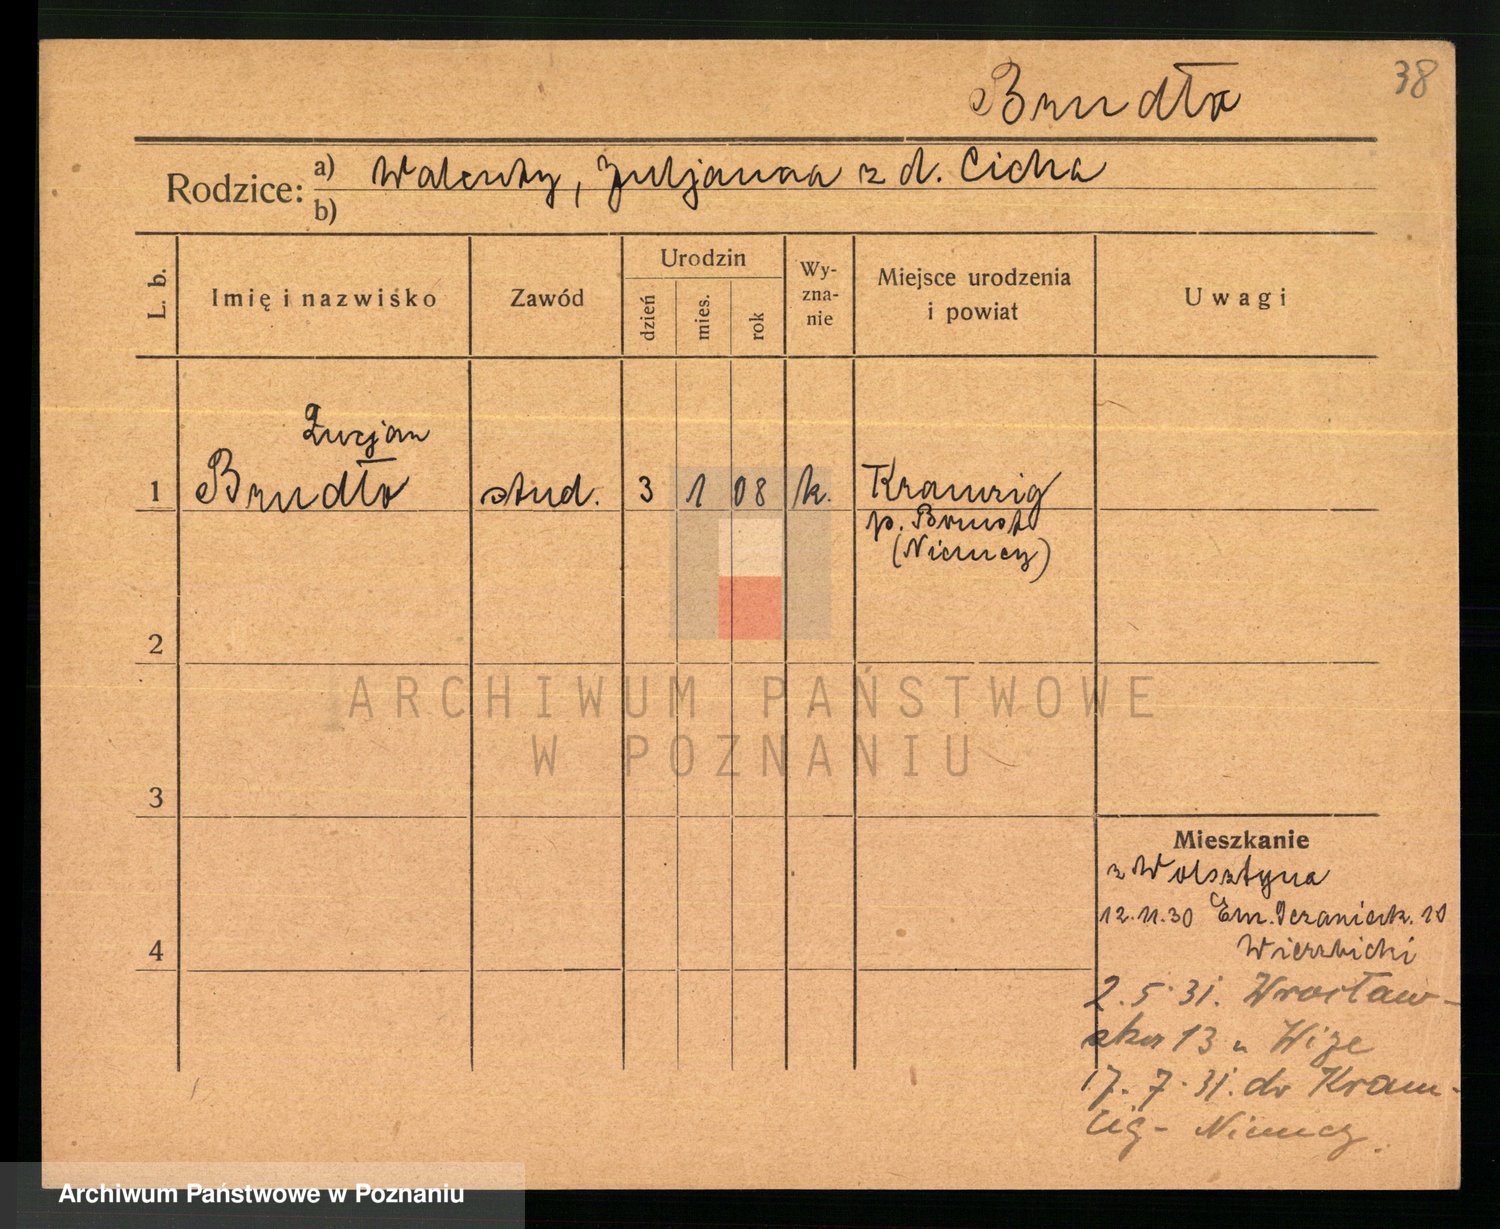 38
Brudło
Rodzice: a) Walenty, Juljanna z d. Cicha
b)
L. b.
Imię i nazwisko
Zawód
Urodzin
dzień
mies.
rok
Wy-
zna-
nie
Miejsce urodzenia
i powiat
Uwagi
Lucjan
1 Brudło stud. 3 1 08 k. Kramzig
p. Bomst
(Niemcy)
2
3
4
ARCHIWUM PAŃSTWOWE
W POZNANIU
Mieszkanie
z Wolsztyna
12.11.30 Em. Sczanieck. 10
Wierzbicki
2.5.31. Wrocław-
ska 13 u Wize
17.7.31. do Kram-
cig - Niemcy.
Archiwum Państwowe w Poznaniu